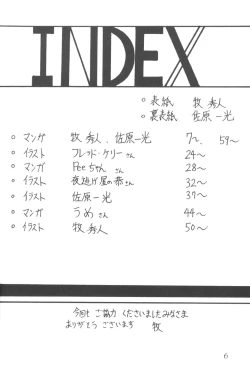 INDEX
○ 表紙 牧 秀人
○ 裏表紙 佐原 一光
○ マンガ 牧 秀人、佐原 一光 7~、59~
○ イラスト フレッド・ケリーさん 24~
○ マンガ Peeちゃんさん 28~
○ イラスト 夜逃げ屋の恭さん 32~
○ イラスト 佐原 一光 37~
○ マンガ うめさん 44~
○ イラスト 牧 秀人 50~
今回もご協力くださいましたみなさま
ありがとうございます 牧
6